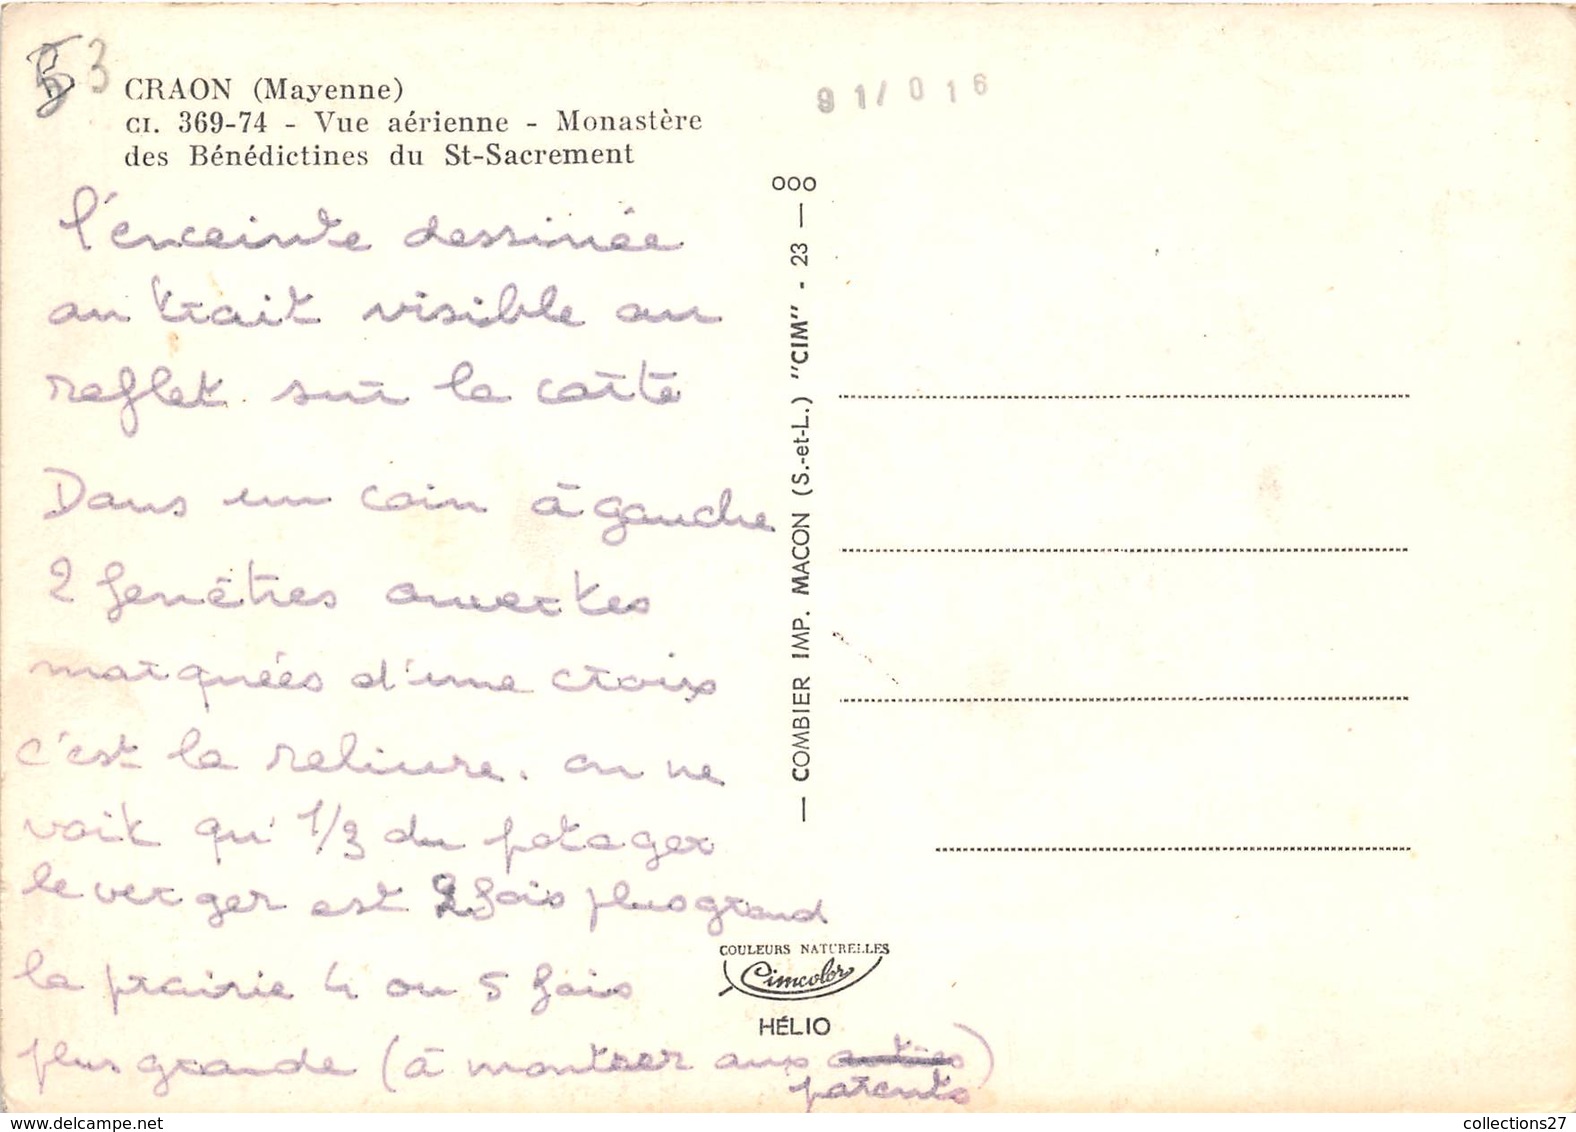 53
CRAON (Mayenne)
CI. 369-74 - Vue aérienne - Monastère
des Bénédictines du St-Sacrement
91/016
l'enceinte dessinée
au trait visible au
reflet sur la carte
Dans un coin à gauche
2 fenêtres ouvertes
marquées d'une croix
c'est la reliure. on ne
voit qu' 1/3 du potager
le verger est 2 fois plus grand
la prairie 4 ou 5 fois
plus grande (à montrer aux
parents)
000
— COMBIER IMP. MACON (S.-et-L.) "CIM" - 23 —
COULEURS NATURELLES
Cimcolor
HÉLIO
collections27